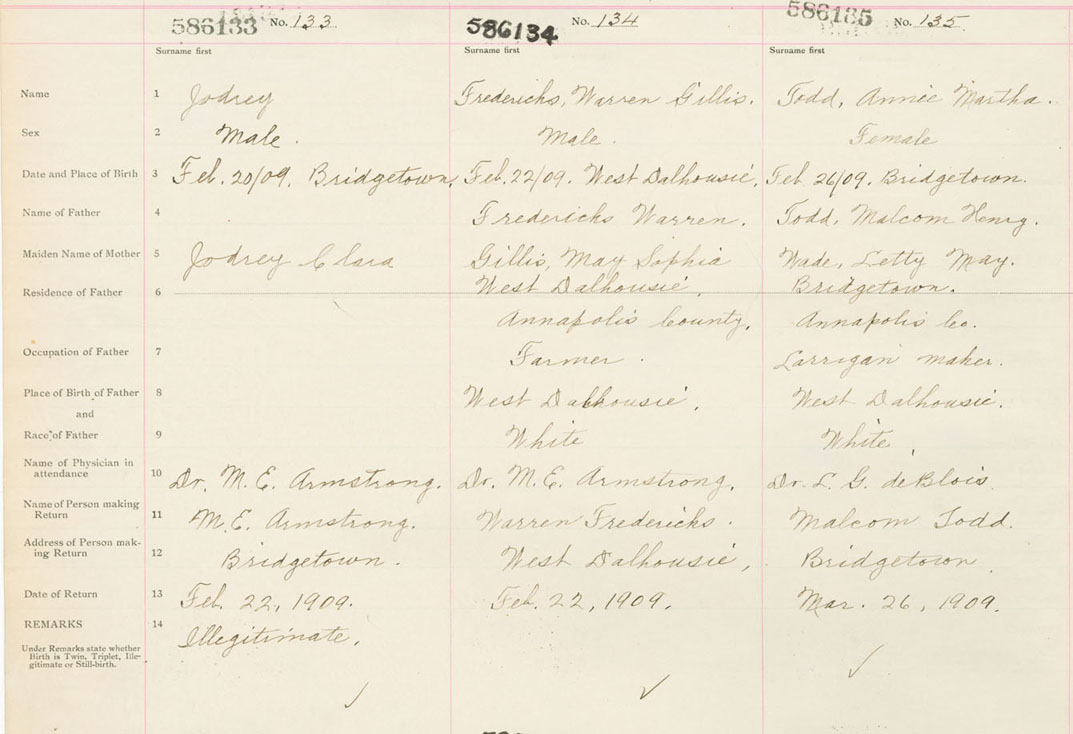 586133 No. 133 586134 No. 134 586135 No. 135
Surname first Surname first Surname first
Name 1 Jodrey Fredericks, Warren Gillis. Todd, Annie Martha.
Sex 2 Male. Male. Female
Date and Place of Birth 3 Feb. 20/09. Bridgetown, Feb. 22/09. West Dalhousie, Feb 26/09. Bridgetown.
Name of Father 4 Fredericks Warren. Todd, Malcom Henry.
Maiden Name of Mother 5 Jodrey Clara Gillis, May Sophia Wade, Letty May.
Residence of Father 6 West Dalhousie, Bridgetown.
Annapolis County, Annapolis Co.
Occupation of Father 7 Farmer. Larrigan maker.
Place of Birth of Father 8 West Dalhousie, West Dalhousie.
and
Race of Father 9 White White
Name of Physician in
attendance 10 Dr. M. E. Armstrong. Dr. M. E. Armstrong. Dr. L. G. deBlois
Name of Person making
Return 11 M. E. Armstrong. Warren Fredericks. Malcom Todd.
Address of Person mak-
ing Return 12 Bridgetown. West Dalhousie, Bridgetown
Date of Return 13 Feb. 22, 1909. Feb. 22, 1909. Mar. 26, 1909.
REMARKS 14 Illegitimate.
Under Remarks state whether
Birth is Twin, Triplet, Ille-
gitimate or Still-birth.